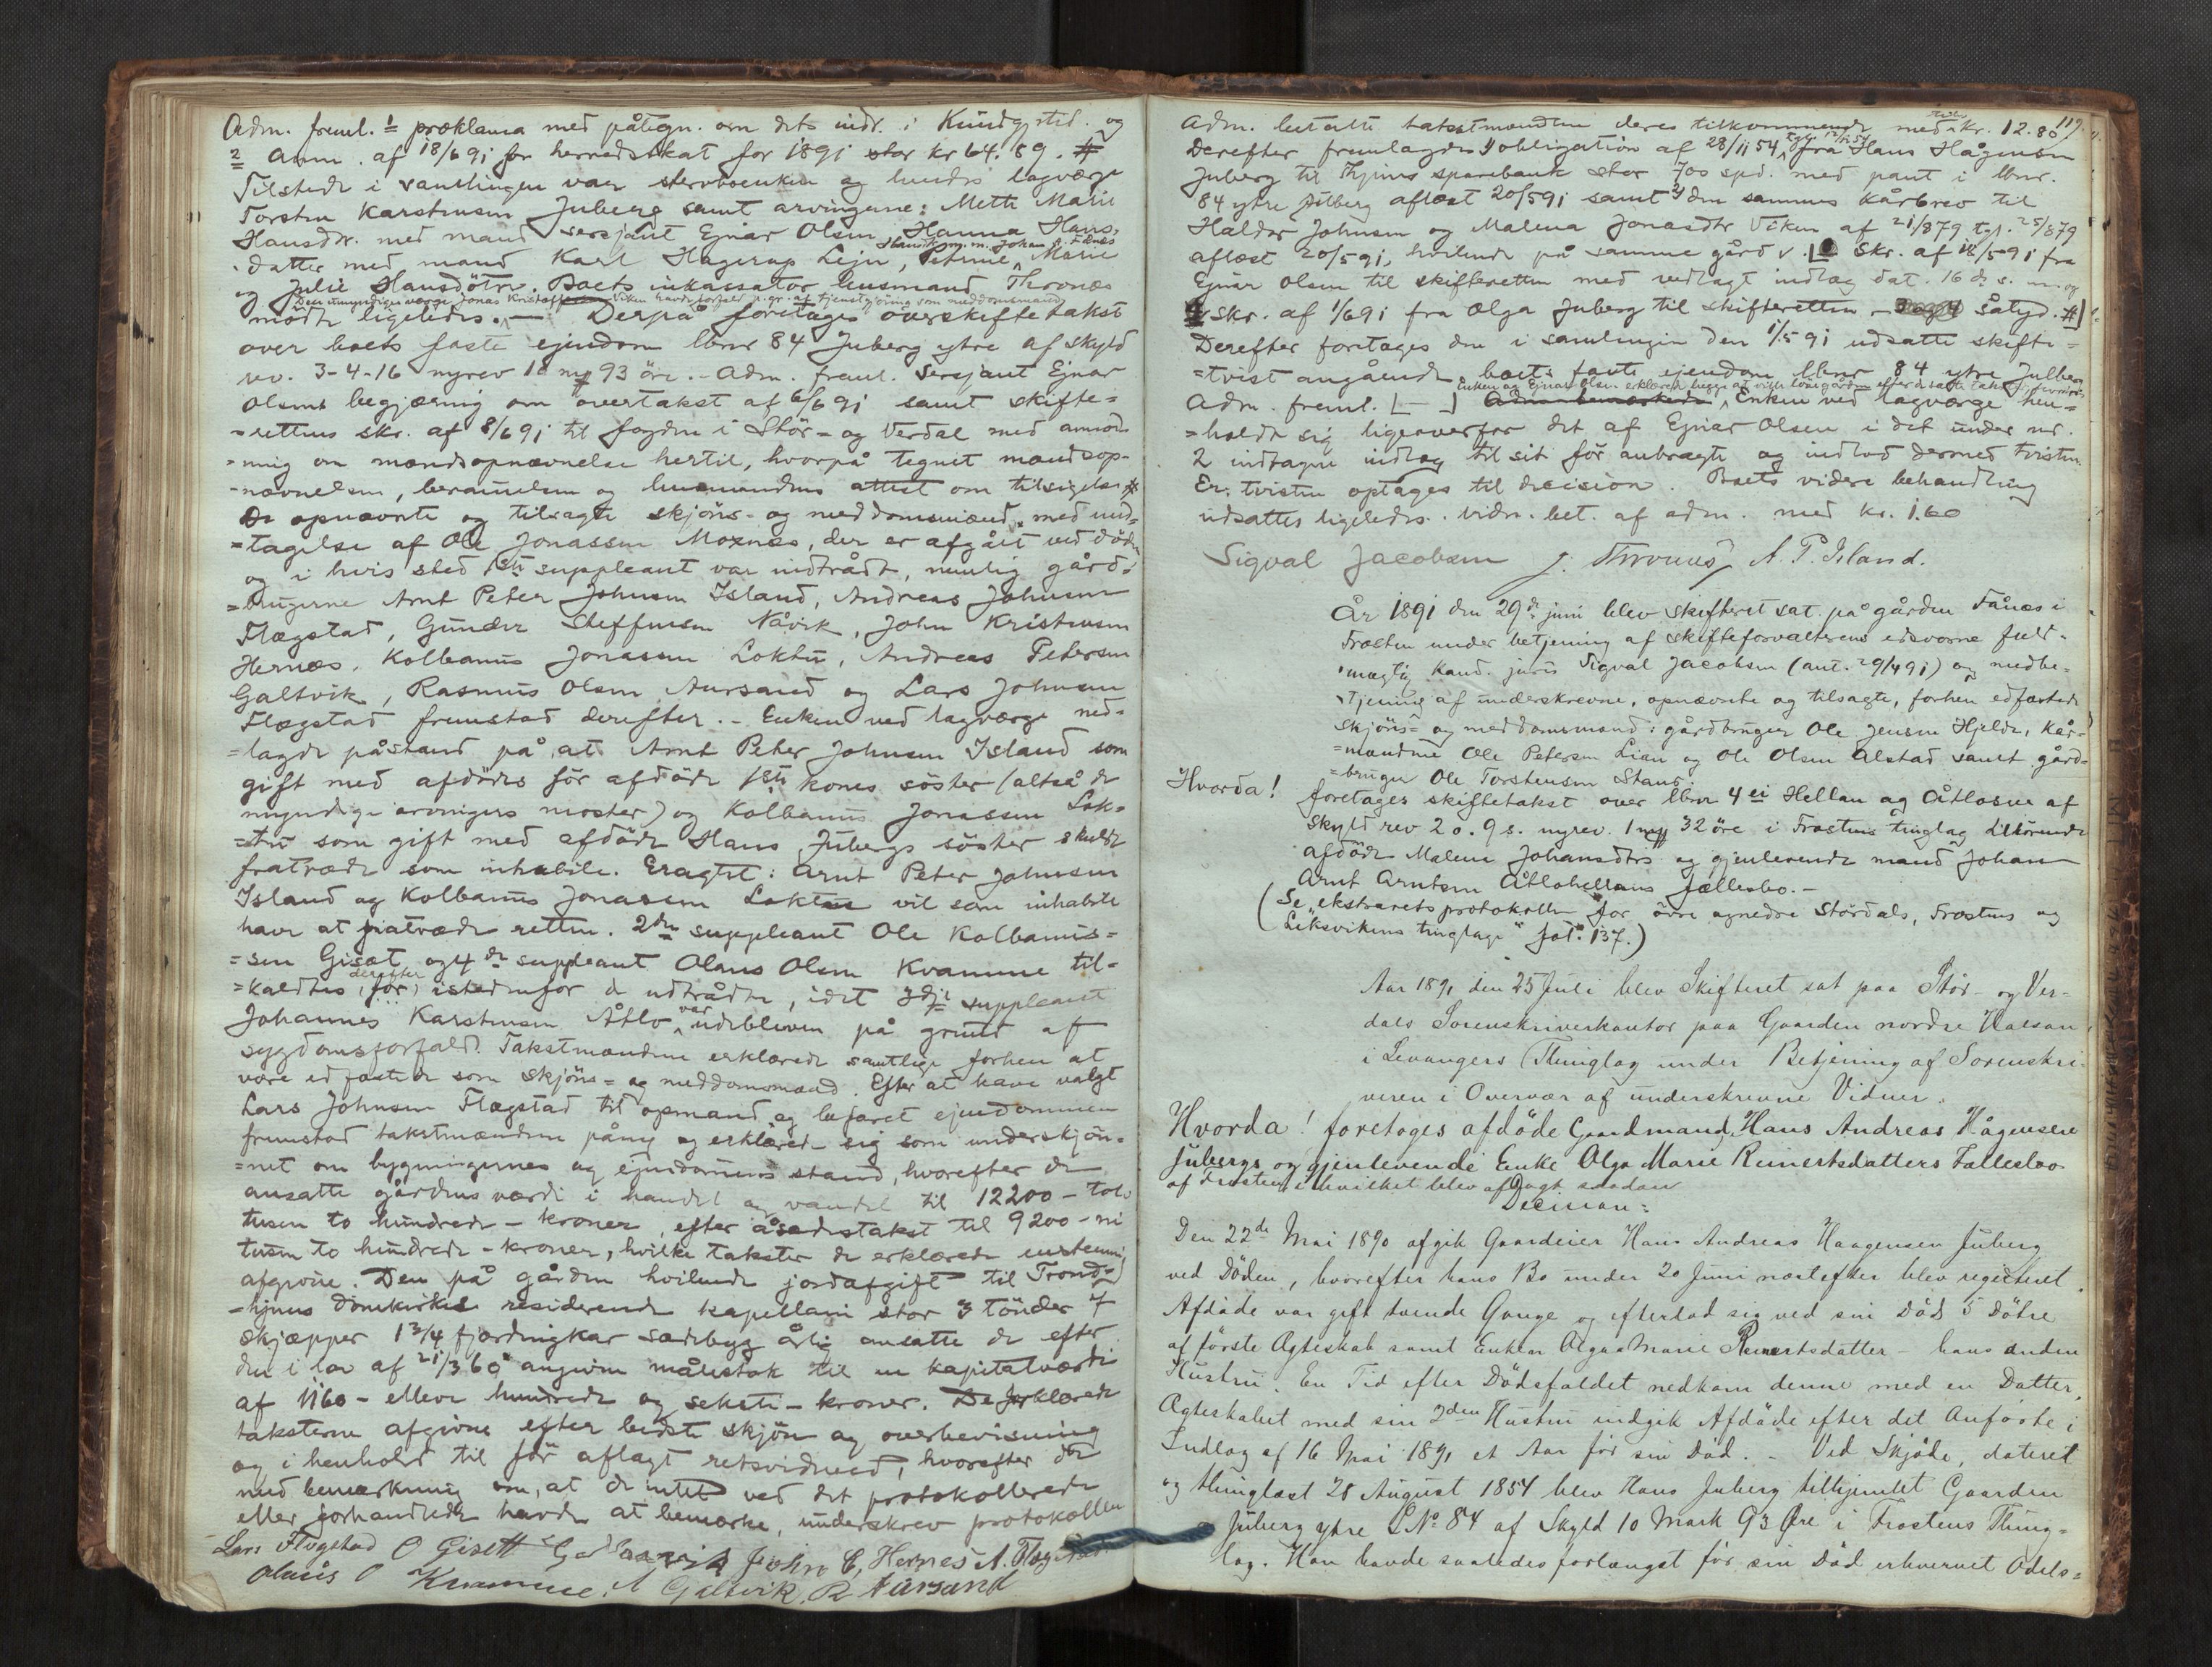 Adm. freml. 1 proklama med påtegn. om dets indr. i Kundgj.tid. og
2 anm. af 18/6 91 for herredsskat for 1891 stor kr 64.89. #
Tilstede i samlingen var stervboenken og hendes lagværge
Torsten Karstensen Juberg samt arvingerne: Mette Marie
Hansdtr. med mand sersjant Ejnar Olsen, Hanna Hans-
Hansdtr m. m. Johan Fånes
datter med mand Karl Hagerup Lejn, Petrine, Marie
og Julie Hansdötre. Boets inkassator husmand Thronæs
Den umyndiges værge Jonas Kristoffersen Viken havde forfald p. gr. af tjenstgjöring som meddomsmand
mödte ligeledes. — Derpå foretages overskiftetakst
over boets faste ejendom lbnr 84 Juberg ytre af skyld
rev. 3-4-16 nyrev 10 mk 93 öre. - Adm. freml. Sersjant Ejnar
Olsens begjæring om overtakst af 6/6 91 samt skifte=
=rettens skr. af 8/6 91 til fogden i Stör- og Verdal med anmod-
=ning om mandsopnævnelse hertil, hvorpå tegnet mandsop-
=nævnelsen, berammelsen og lensmandens attest om tilsigelse #
De opnævnte og tilsagte skjöns- og meddomsmænd, med und=
=tagelse af Ole Jonassen Moxnæs, der er afgået ved döden
og i hvis sted 1ste suppleant var indtrådt, nemlig gård-
=brugerne Arnt Peter Johnsen Island, Andreas Johnsen
Flægstad, Gunder Steffensen Nåvik, John Kristensen
Hernæs, Kolbanus Jonassen Loktu, Andreas Petersen
Galtvik, Rasmus Olsen Aursand og Lars Johnsen
Flægstad fremstod derefter. - Enken ved lagværge ned-
=lagde påstand på, at Arnt Peter Johnsen Island som
gift med afdödes för afdöde 1ste kones söster (altså de
myndige arvingers moster) og Kolbanus Jonassen Lok-
=tu som gift med afdöde Hans Jubergs söster skulde
fratræde som inhabile. Eragtet: Arnt Peter Johnsen
Island og Kolbanus Jonassen Loktu vil som inhabile
have at fratræde retten. 2den suppleant Ole Kolbanus=
=sen Gisæt og 4de suppleant Olaus Olsen Kvamme til-
derefter
=kaldtes, istedenfor de udtrådte, idet 3dje suppleant
Johannes Karstensen Åtlo var udebleven på grund af
sygdomsforfald. Takstmændene erklærede samtlige forhen at
være edfæstede som skjöns= og meddomsmænd. Efter at have valgt
Lars Johnsen Flægstad til opmand og befaret ejendommen
fremstod takstmændene påny og erklærede sig som underskjön-
=net om bygningernes og ejendomens stand, hvorefter de
ansatte gårdens værdi i handel og vandel til 12200 - tolv
tusen to hundrede - kroner, efter åsædestakst til 9200 - ni
tusen to hundrede - kroner, hvilke takster de erklærede enstemmig
afgivne. Den på gården hvilende jordafgift til Trond-
=hjems domkirkes residerende kapellani stor 3 tönder 7
skjæpper 1 3/4 fjordingkar sædebyg årlig ansatte de efter
den i lov af 21/3 60 angivne målestok til en kapitalværdi
af 1160 - elleve hundrede og seksti - kroner. De erklærede
taksterne afgivne efter bedste skjön og overbevisning
og i henhold til för aflagt retsvidneed, hvorefter de
med bemærkning om, at de intet ved det protokollerede
eller forhandlede havde at bemærke, underskrev protokollen
Lars Flægstad O Gisett John C. Hernes A. Flægstad
Olaus O Kvamme. A Galtvik. R Aursand
119.
Adm. betalte takstmændene deres tilkommende med kr. 12.80
Derefter fremlagdes obligation af 28/11 54, fra Hans Hågensen
Juberg til Thjems sparebank stor 700 spd. med pant i lbnr.
84 ytre Julberg aflæst 20/5 91 samt 3 den sammes kårbrev til
Haldor Johnsen og Malena Jonasdtr Viken af 21/8 79 tgl. 25/8 79
aflæst 20/5 91, hvilende på samme gård v. skr. af 18/5 91 fra
Ejnar Olsen til skifteretten med vedlagt indlæg dat. 16 ds. m. og
skr. af 1/6 91 fra Olga Juberg til skifteretten - såtyd. #]
Derefter foretages den i samlingen den 1/5 91 udsatte skifte=
=tvist angående boets faste ejendom lbnr 84 ytre Julberg
Enken og Ejnar Olsen erklærede begge at ville löse gården efter
Adm. freml. Enken ved lagværge hen=
=holdt sig ligeoverfor det af Ejnar Olsen i det under nr.
2 indtagne indlæg til sit för anbragte og indlod dermed tvisten.
Er: tvisten optages til decision. Boets videre behandling
udsattes ligeledes. Vidn. bet. af adm. med kr. 1.60
Sigval Jacobsen J. Thronæs A. P. Island.
År 1891 den 29de juni blev skifteret sat på gården Fånæs i
Frosten under betjening af skifteforvalterens edsvorne fuld-
=mægtig kand. juris Sigval Jacobsen (ant. 29/4 91) og medbe-
=tjening af underskrevne, opnævnte og tilsagte, forhen edfæstede
skjöns= og meddomsmænd: gårdbruger Ole Jensen Hjelde, kår-
=mændene Ole Petersen Lian og Ole Olsen Alstad samt gård-
=bruger Ole Torstensen Stand.
Hvorda! foretages skiftetakst over lbnr 4 ei Hellan og Åtlosne af
skyld rev 2 o. 9 s. nyrev. 1 mk 32 öre i Frostens tinglag tilhörende
afdöde Malene Johansdtrs og gjenlevende mand Johan
Arnt Arntsen Åtlohellans fællesbo. -
(Se "ekstraretsprotokollen for övre og nedre Stördals, Frostens og
Leksvikens tinglage" fol. 137.)
Aar 1891 den 25 Juli blev Skifteret sat paa Stör- og Ver=
dals Sorenskriverkontor paa Gaarden nordre Halsan
i Levangers Thinglag under Betjening af Sorenskri-
veren i Overvær af underskrevne Vidner.
Hvorda! foretoges afdöde Gaardmand Hans Andreas Hågensen
Jubergs og gjenlevende Enke Olga Marie Reinertsdatters Fællesbo
af Frosten, i hvilket blev afsagt saadan
Decision:
Den 22de Mai 1890 afgik Gaardeier Hans Andreas Haagensen Juberg
ved Döden, hvorefter hans Bo under 20 Juni næstefter blev registreret.
Afdöde var gift tvende Gange og efterlod sig ved sin Död 5 Dötre
af förste Ægteskab samt Enken Olga Marie Reinertsdatter - hans anden
Hustru. En Tid efter Dödsfaldet nedkom denne med en Datter.
Ægteskabet med sin 2den Hustru indgik Afdöde efter det Anförte i
Indlæg af 16 Mai 1891 et Aar för sin Död. - Ved Skjöde, dateret
og thinglæst 28 August 1854 blev Hans Juberg tilhjemlet Gaarden
Juberg ytre LNo 84 af Skyld 10 Mark 93 Öre i Frostens Thing=
lag. Han havde saaledes forlængst för sin Död erhvervet Odels=